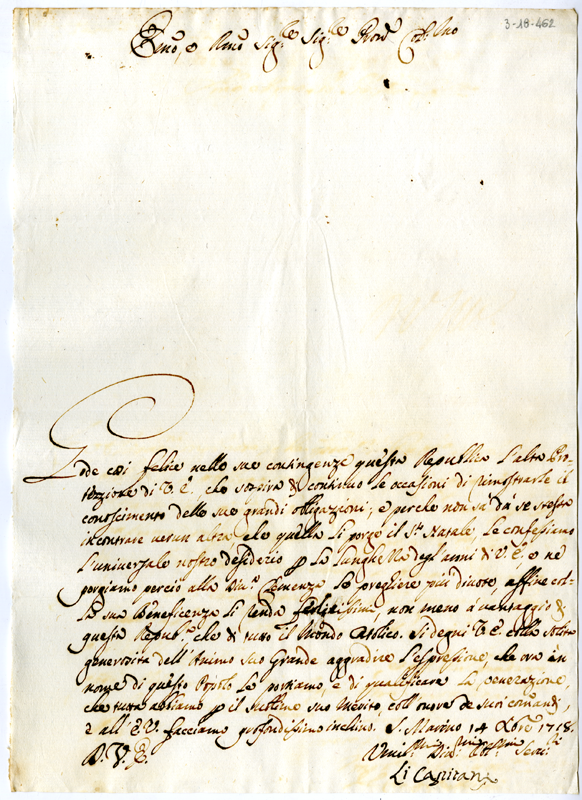 3-18-462
Emo, e Rmo Sigre Sigre Pron Colmo
Gode così felice nelle sue contingenze questa Republica l'alta Pro-
tezione di V. E. che stariva di continuo le occasioni di rimostrarle il
conoscimento delle sue grandi obligazioni; e perche non sà da se stessa
incontrare verun altra che quella li porge il Sto Natale, le confessiamo
l'universale nostro desiderio p la lunghezza degl'anni di V. E. e ne
porgiamo perciò alla Divna Clemenza le preghiere più divote, affine col-
la sua Beneficenza li renda felicissimi non meno a vantaggio di
questa Repubca che di tutto il Mondo Catolico. Si degni V. E. colla solita
generosità dell'Animo suo Grande aggradire l'espressione, che ora in
nome di questo Popolo le portiamo, e di qualificare la venerazione,
che tutta abbiamo p il sublime suo Merito, coll'onore de suoi comandi,
e all'E. V. facciamo profondissimo inchino. S. Marino 14 Xbre 1718.
D. V. E.
Li Capitani